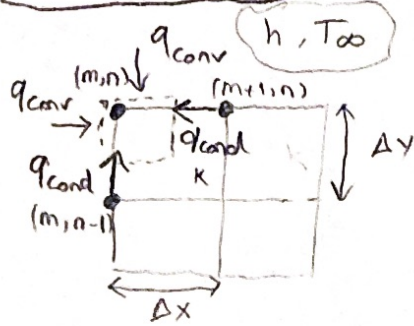 h, T∞
qconv
(m,n)
(m+1,n)
qconv
qcond
Δy
qcond
K
(m,n-1)
Δx